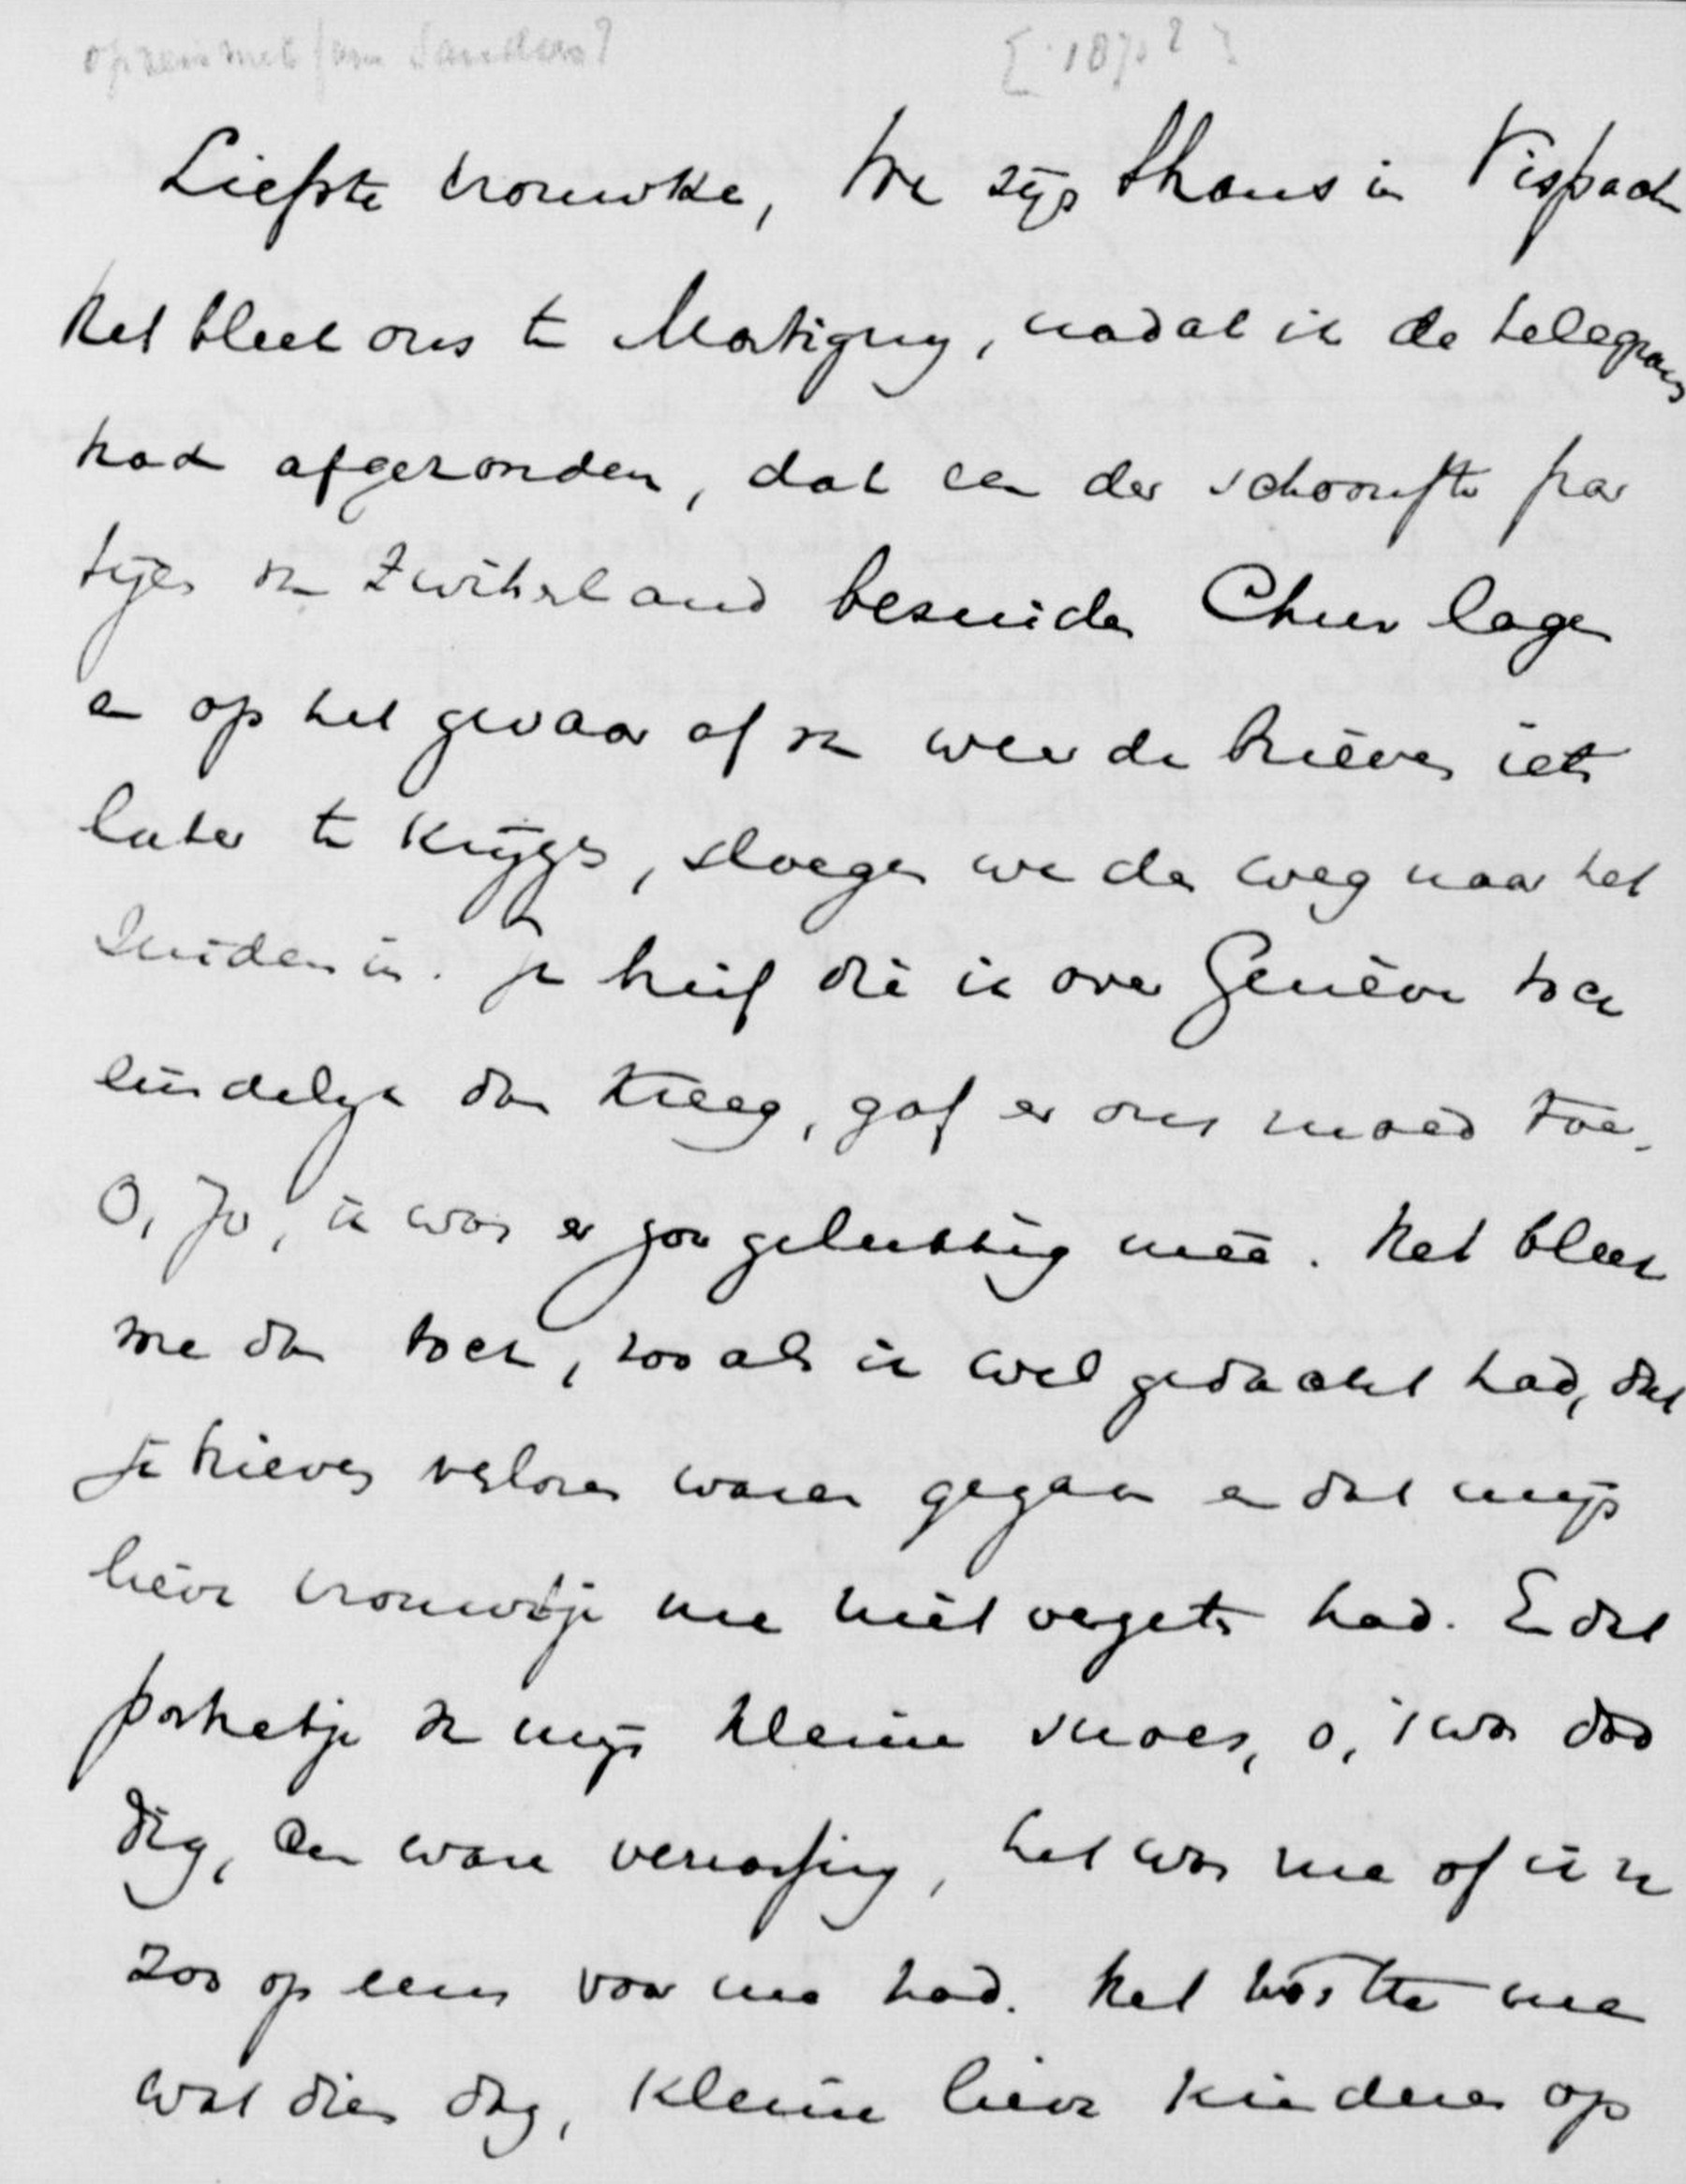 op reis met fam Sanders?
[1890?]
Liefste vrouwke, We zijn thans in Vispach
Het bleek ons te Martigny, nadat ik de telegram
had afgezonden, dat een der schoonste par
tijen van Zwitserland bezuiden Chur lagen
en op het gevaar af van weer de brieven iets
later te krijgen, sloegen we den weg naar het
Zuiden in. Je brief die ik over Genève toch
eindelijk dan kreeg, gaf er ons moed toe.
O, Jo, ik was er zoo gelukkig meê. Het bleek
me dan toch, zooals ik wel gedacht had, dat
je brieven verloren waren gegaan en dat mijn
lieve vrouwtje me niet vergeten had. En dat
portretje van mijn kleine snoes, o, 't was dod
dig, een ware verrassing, het was me of ik ze
zoo op eens voor me had. Het troostte me
wat dien dag, kleine lieve kinderen op